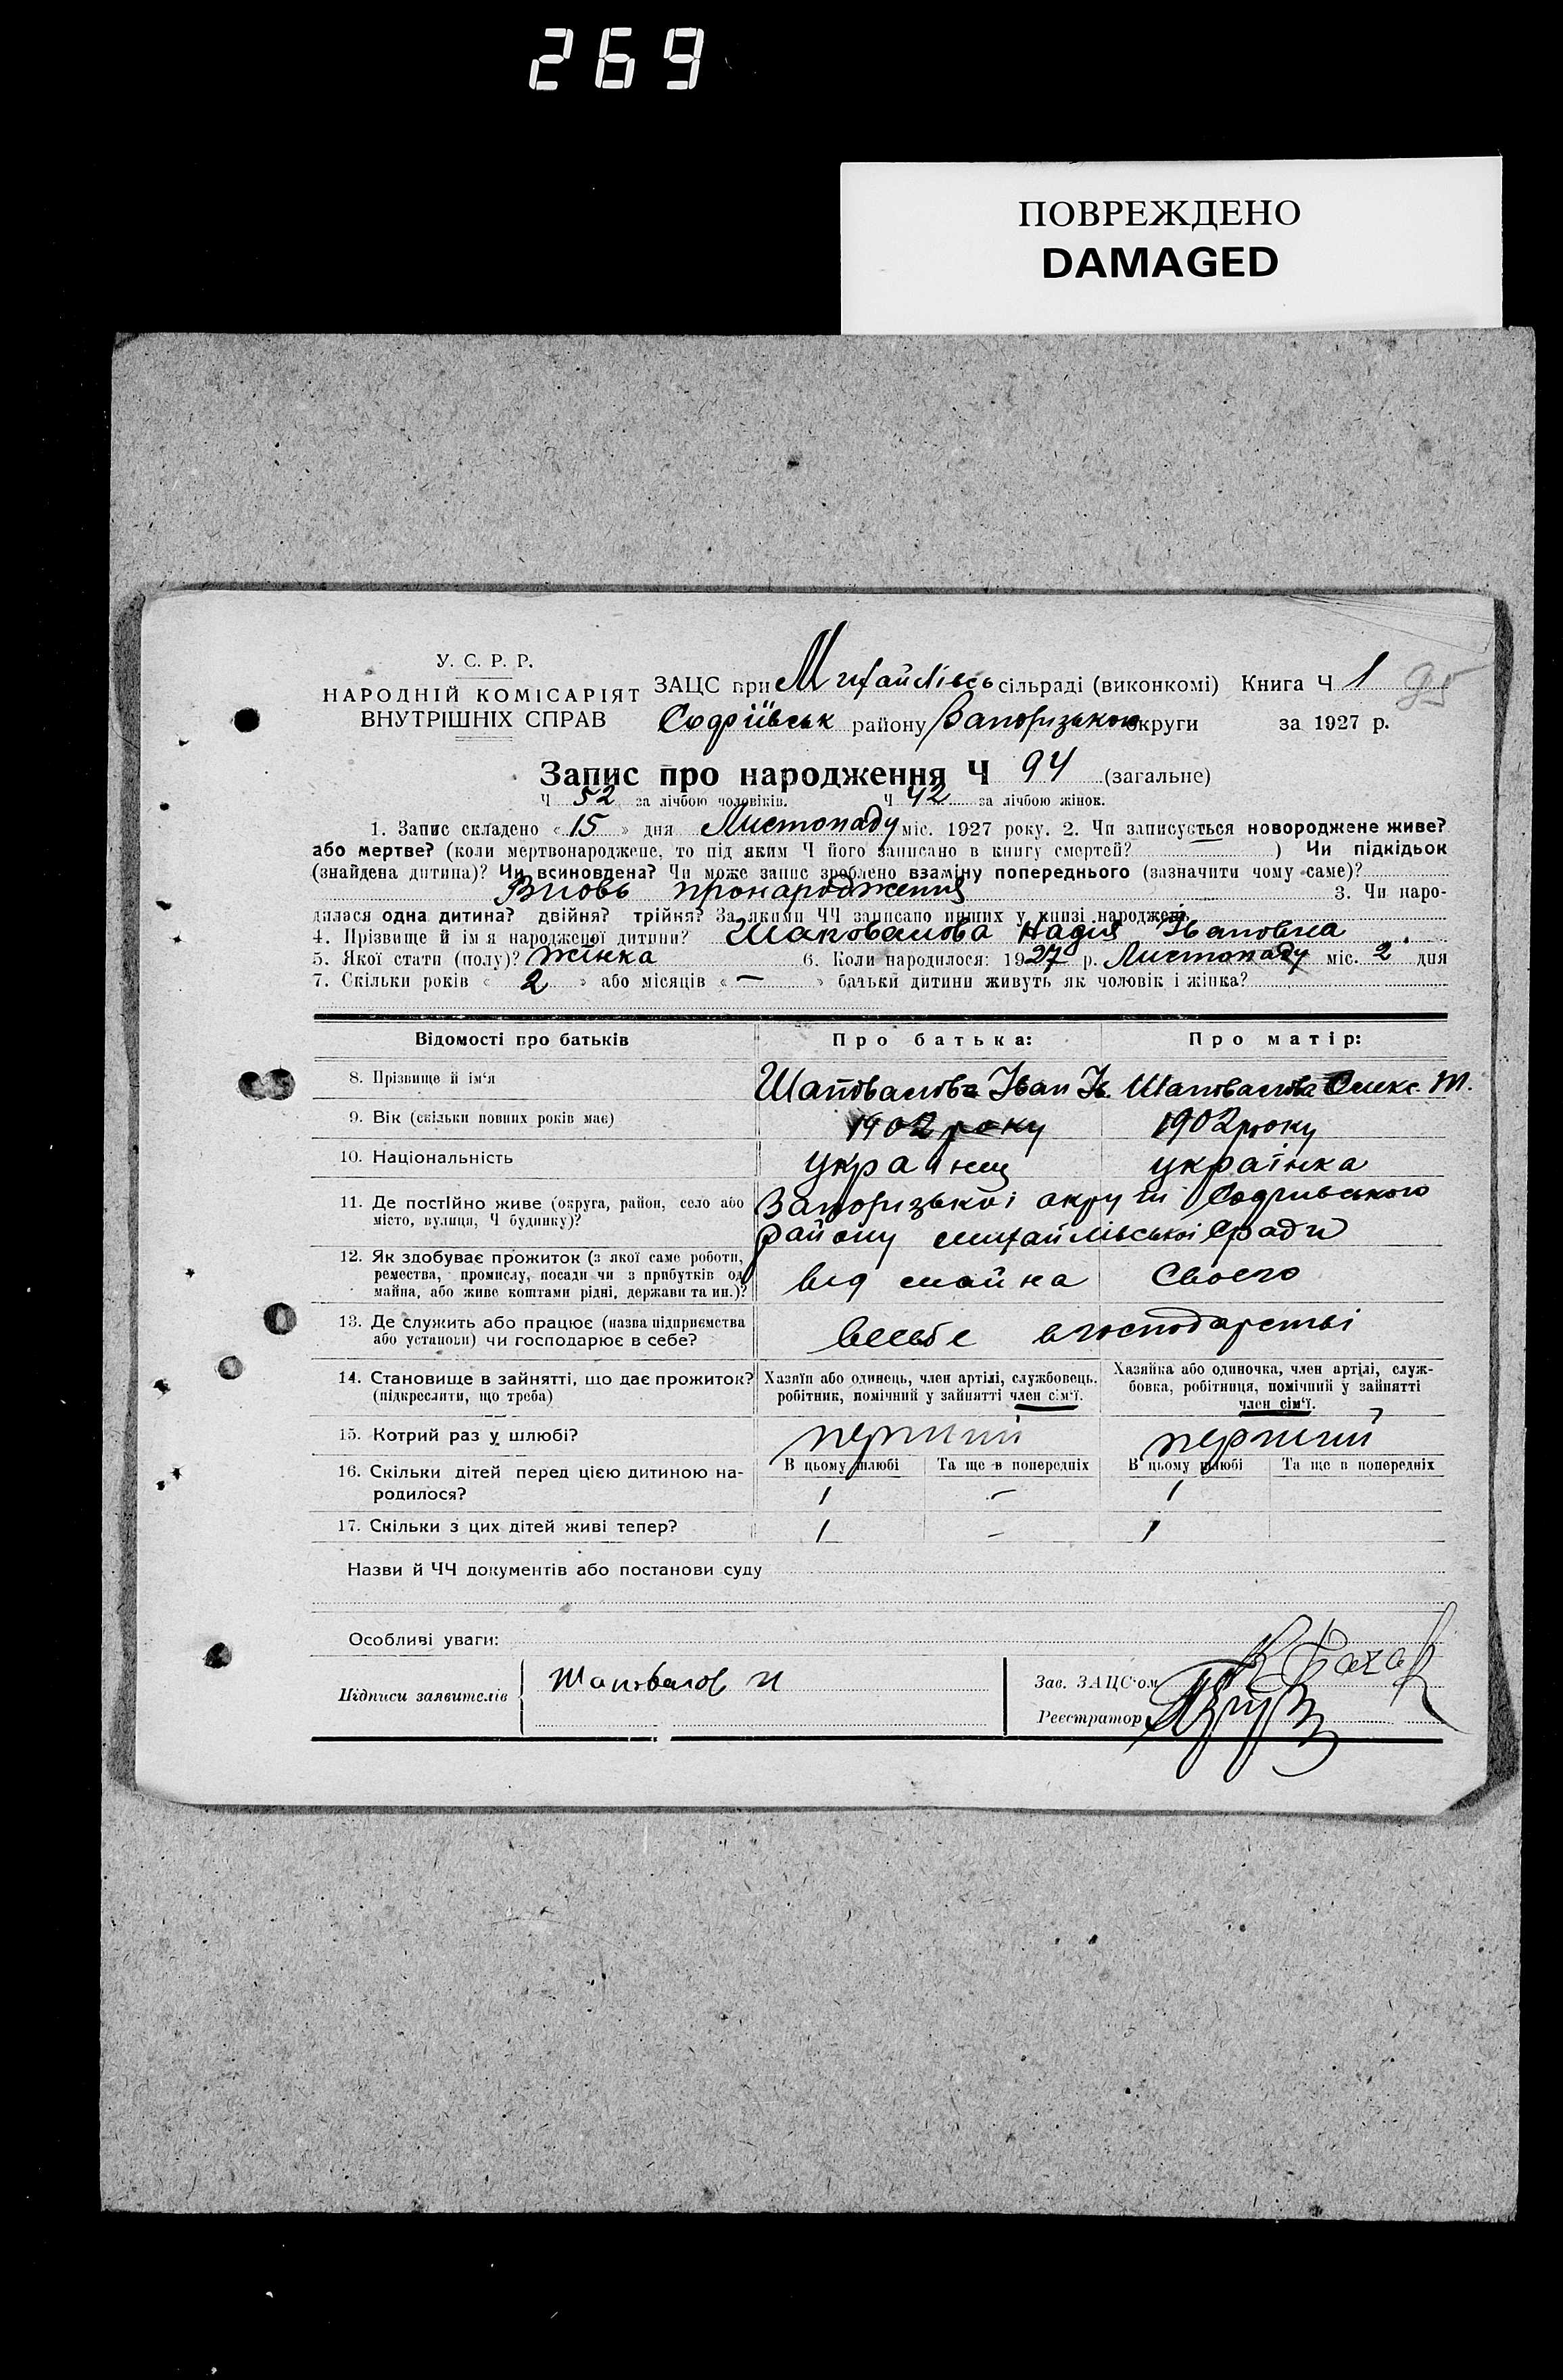 269
ПОВРЕЖДЕНО
DAMAGED
У. С. Р. Р.
НАРОДНІЙ КОМІСАРІЯТ
ВНУТРІШНІХ СПРАВ
ЗАЦС при Михайлівсь сільраді (виконкомі) Книга Ч 1
Софіївськ району Запоризькой округи за 1927 р.
Запис про народження Ч 94 (загальне)
Ч 52 за лічбою чоловіків. Ч 42 за лічбою жінок.
1. Запис складено «15» дня Листопаду міс. 1927 року. 2. Чи записується новороджене живе?
або мертве? (коли мертвонароджене, то під яким Ч його записано в книгу смертей? ) Чи підкідьок
(знайдена дитина)? Чи всиновлена? Чи може запис зроблено взаміну попереднього (зазначити чому саме)?
Вновь пронародження 3. Чи наро-
дилася одна дитина? двійня? трійня? За якими ЧЧ записано инших у книзі народжень
4. Прізвище й ім я народженої дитини? Шаповалова Надия Івановна
5. Якої стати (полу)? жінка 6. Коли народилося: 1927 р. Листопаду міс. 2 дня
7. Скільки років « 2 » або місяців « — » батьки дитини живуть як чоловік і жінка?
Відомості про батьків Про батька: Про матір:
8. Прізвище й ім‘я Шаповалова Іван Ів. Шаповалова Олекс. М.
9. Вік (скільки повних років має) 1902 року 1902 року
10. Національність українец українка
11. Де постійно живе (округа, район, село або Запоризької округи Софиивського
місто, вулиця, Ч будинку)? району михайлівської Сради
12. Як здобуває прожиток (з якої саме роботи,
ремества, промислу, посади чи з прибутків од від майна Своего
майна, або живе коштами рідні, держави та ин.)?
13. Де служить або працює (назва підприємства
або установи) чи господарює в себе? всебе вгосподарстві
14. Становище в зайнятті, що дає прожиток? Хазяїн або одинець, член артілі, службовець, Хазяйка або одиночка, член артілі, служ-
(підкреслити, що треба) робітник, помічний у зайнятті член сім‘ї. бовка, робітниця, помічний у зайнятті
член сім‘ї.
15. Котрий раз у шлюбі? перший перший
16. Скільки дітей перед цією дитиною на- В цьому шлюбі Та ще в попередніх В цьому шлюбі Та ще в попередніх
родилося? 1 — 1
17. Скільки з цих дітей живі тепер? 1 — 1
Назви й ЧЧ документів або постанови суду
Особливі уваги:
Підписи заявителів Шаповалов И Зав. ЗАЦС‘ом
Реєстратор